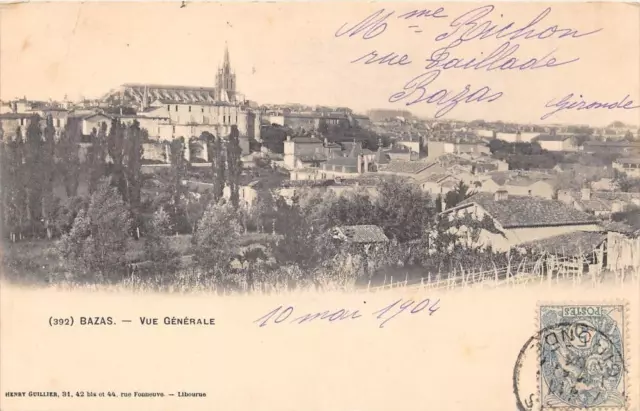 Mme Bichon
rue Taillade
Bazas
Gironde
(392) BAZAS. — VUE GÉNÉRALE
10 mai 1904
POSTES
HENRY GUILLIER, 91, 42 bis et 44, rue Fonneuve. — Libourne